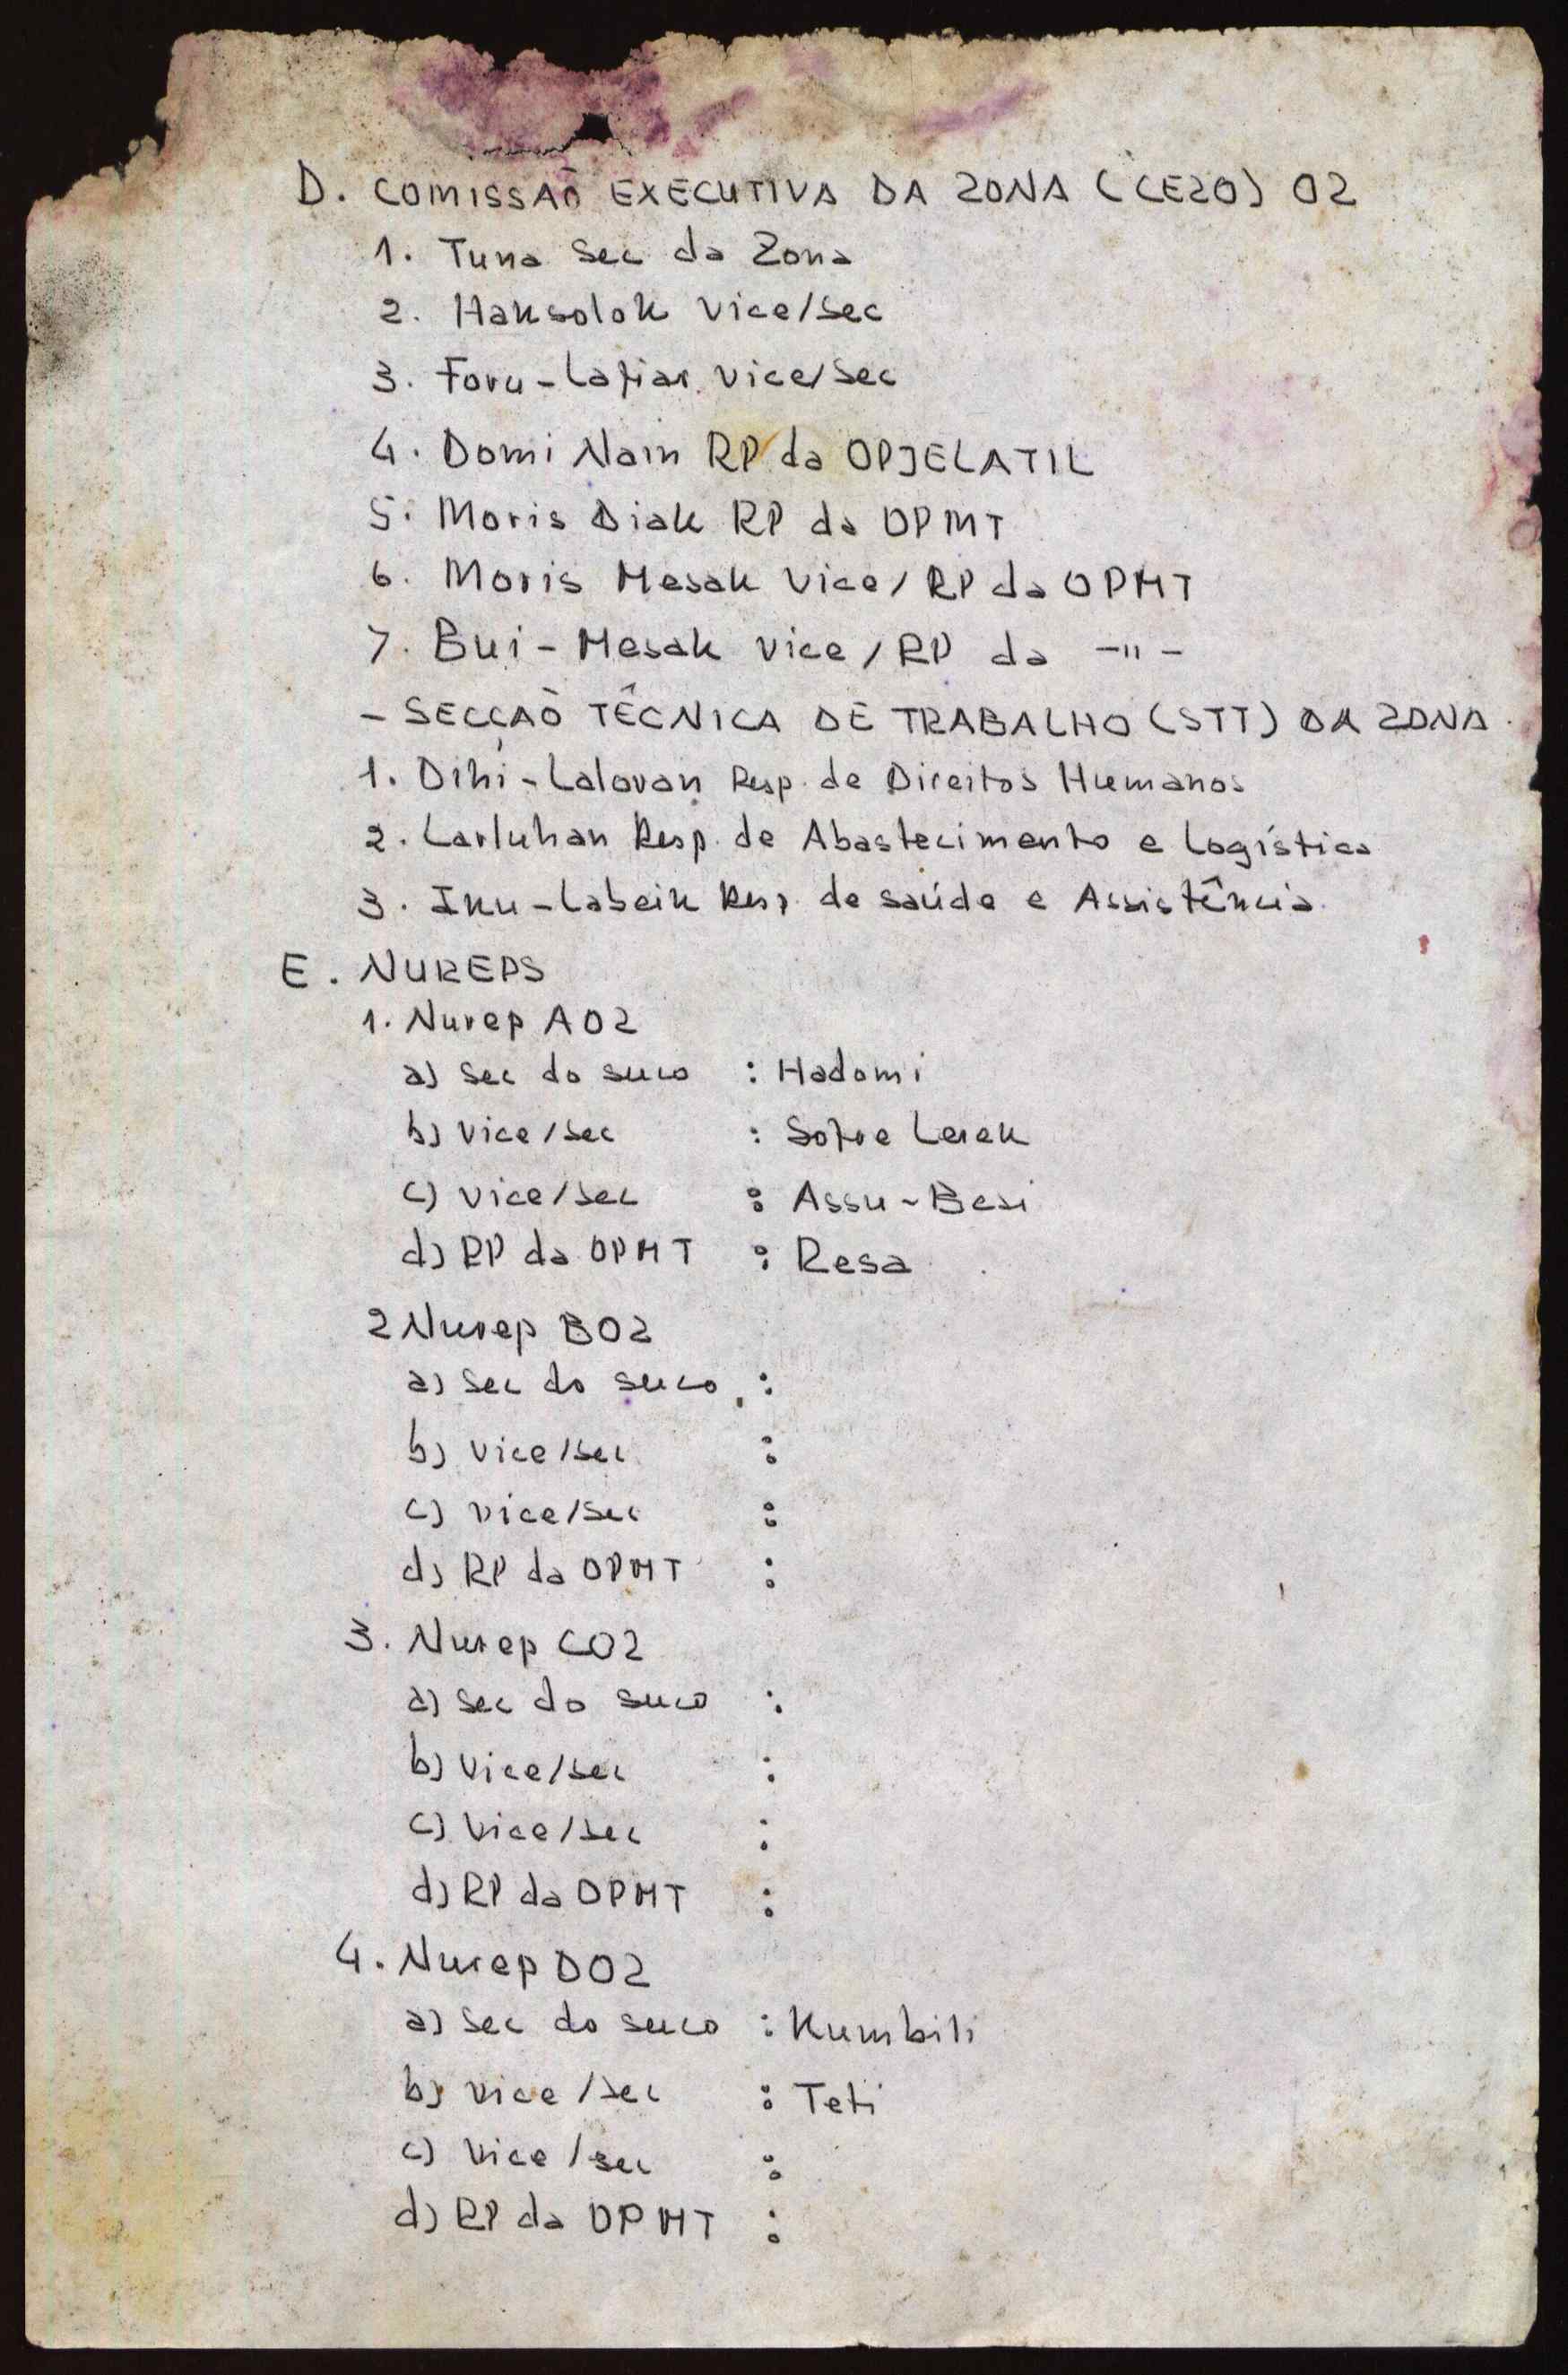 D. COMISSAÕ EXECUTIVA DA ZONA (CEZO) 02
1. Tuna Sec da Zona
2. Haksolok Vice/Sec
3. Foru-Lafiar Vice/Sec
4. Domi Nain RP da OPJELATIL
5. Moris Diak RP da OPMT
6. Moris Mesak Vice/RP da OPMT
7. Bui-Mesak Vice/RP da -"-
- SECÇAÕ TÊCNICA DE TRABALHO (STT) DA ZONA
1. Dihi-Lalovan Resp. de Direitos Humanos
2. Larluhan Resp. de Abastecimento e Logística
3. Iku-Labeik Resp. de saúde e Assistência.
E. NUREPS
1. Nurep A02
a) Sec do suco : Hadomi
b) Vice/Sec : Sofre Lerek
c) Vice/Sec : Assu-Besi
d) RP da OPMT : Resa
2 Nurep B02
a) Sec do suco :
b) Vice/Sec :
c) Vice/Sec :
d) RP da OPMT :
3. Nurep C02
a) Sec do suco :
b) Vice/Sec :
c) Vice/Sec :
d) RP da OPMT :
4. Nurep D02
a) Sec do suco : Kumbili
b) Vice/Sec : Teti
c) Vice/sec :
d) RP da OPMT :